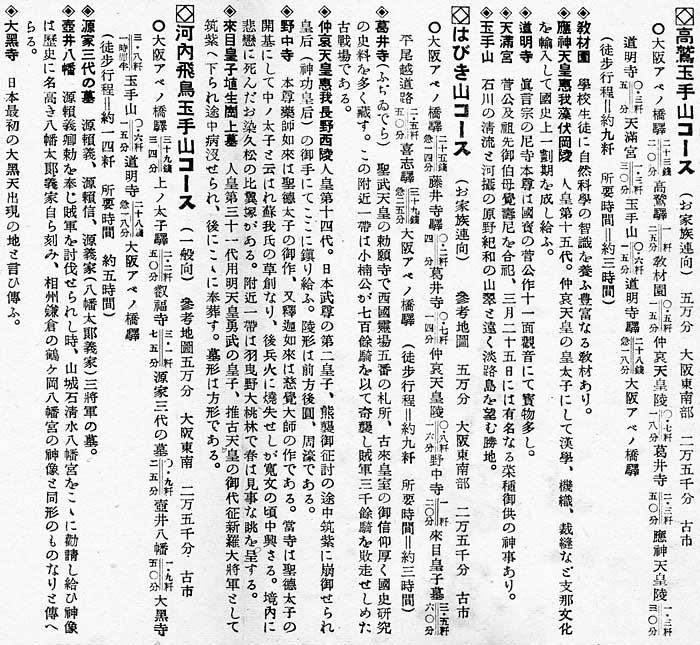 高鷲玉手山コース　（お家族連向）　五万分　大阪東南部　二万五千分　古市
〇大阪アベノ橋驛 二十三錢 二〇分 高鷲驛 一粁 二五分 教材園 〇・五粁 一五分 仲哀天皇陵 〇・七粁 一八分 葛井寺 二・三粁 五〇分 應神天皇陵 一・三粁 三〇分
道明寺 〇・三粁 五分 天滿宮 一・三粁 三〇分 玉手山 〇・六粁 一五分 道明寺驛 二十八錢 急一八分 大阪アベノ橋驛
（徒歩行程＝約九粁　所要時間＝約三時間）
◈教材園　學校生徒に自然科學の智識を養ふ豊富なる教材あり。
◈應神天皇惠我藻伏岡陵　人皇第十五代。仲哀天皇の皇太子にして漢學、機織、裁縫など支那文化
を輸入して國史上一劃期を成し給ふ。
◈道明寺　眞言宗の尼寺本尊は國寶の菅公作十一面觀音にて寶物多し。
◈天滿宮　菅公及祖先御伯母覺壽尼を合祀、三月二十五日には有名なる菜種御供の神事あり。
◈玉手山　石川の淸流と河攝の原野紀和の山翠と遠く淡路島を望む勝地。
はびき山コース　（お家族連向）　參考地圖　五万分　大阪東南部　二万五千分　古市
〇大阪アベノ橋驛 二十五錢 急一四分 藤井寺驛 〇・二粁 四分 葛井寺 〇・七粁 一四分 仲哀天皇陵 〇・八粁 一六分 野中寺 一粁 二〇分 來目皇子墓 三・五粁 六〇分
平尾越道路 二・五粁 五〇分 喜志驛 三十九錢 急二五分 大阪アベノ橋驛　（徒歩行程＝約九粁　所要時間＝約三時間）
◈葛井寺（ふぢゐでら）　聖武天皇の勅願寺で西國靈場五番の札所、古來皇室の御信仰厚く國史研究
の史料を多く藏す。この附近一帯は小楠公が七百餘騎を以て奇襲し賊軍三千餘騎を敗走せしめた
古戰場である。
◈仲哀天皇惠我長野西陵　人皇第十四代。日本武尊の第二皇子、熊襲御征討の途中筑紫に崩御せられ
皇后（神功皇后）の御手にてここに鎭り給ふ。陵形は前方後圓、周濠である。
◈野中寺　本尊藥師如來は聖德太子の御作、又釋迦如來は慈覺大師の作である。當寺は聖德太子の
開基にして中ノ太子と云はれ蘇我氏の草創なり、後兵火に燒失せしが寛文の頃中興さる。境内に
悲戀に死んだお染久松の比翼塚がある。附近一帯は羽曳野大桃林で春は見事な眺を呈する。
◈來目皇子埴生岡上墓　人皇第三十一代用明天皇勇武の皇子、推古天皇の御代征新羅大將軍として
筑紫へ下られ途中病沒せられ、後にこゝに奉葬す。墓形は方形である。
河内飛鳥玉手山コース　（一般向）　參考地圖五万分　大阪東南　二万五千分　古市
〇大阪アベノ橋驛 三十九錢 三四分 上ノ太子驛 二・二粁 五〇分 叡福寺 三・一粁 七五分 源家三代の墓 〇・九粁 二五分 壺井八幡 一・九粁 五〇分 大黑寺
三・八粁 一時間半 玉手山 〇・六粁 一五分 道明寺 二十八錢 急一八分 大阪アベノ橋驛
（徒歩行程＝約一四粁　所要時間　約五時間）
◈源家三代の墓　源賴義、源賴信、源義家（八幡太郎義家）三將軍の墓。
◈壺井八幡　源賴義卿勅を奉じ賊軍を討伐せられし時、山城石淸水八幡宮をこゝに勸請し給ひ神像
は歷史に名高き八幡太郎義家自ら刻み、相州鎌倉の鶴ヶ岡八幡宮の神像と同形のものなりと傳へ
らる。
◈大黑寺　日本最初の大黑天出現の地と言ひ傳ふ。